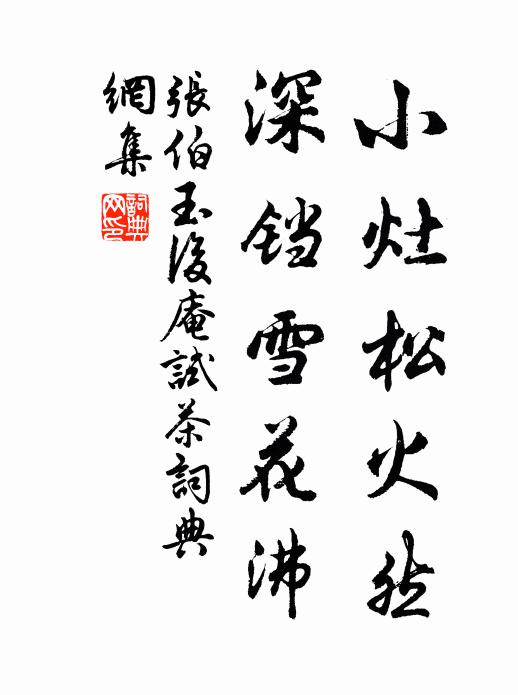 小灶松火然
深铛雪花沸
張伯玉後庵試茶詞典
網集
詞典網印